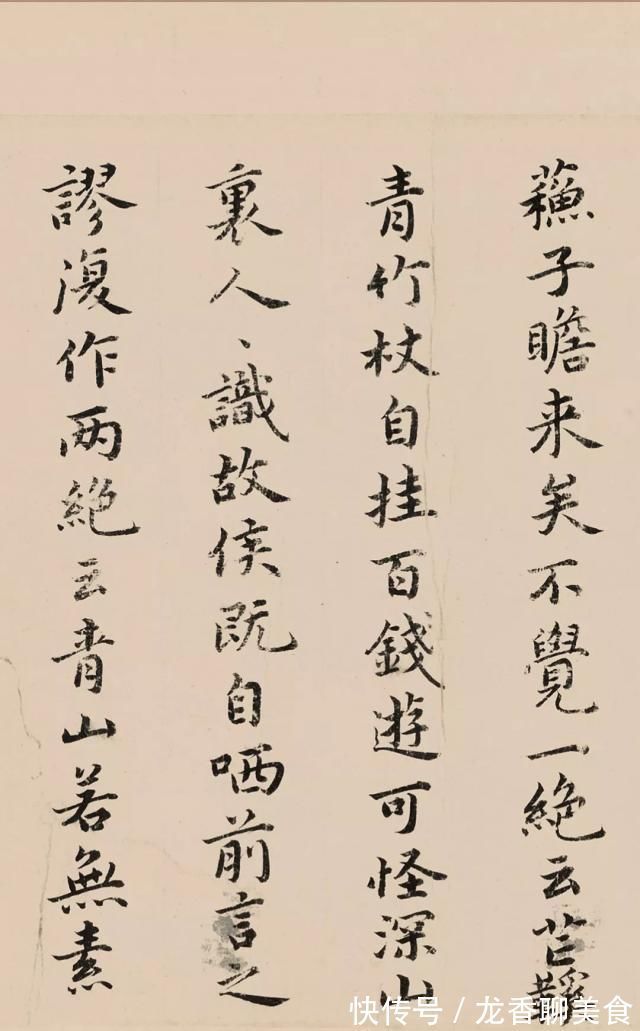 蘓子瞻来矣不覺一絶云芒鞵
青竹杖自挂百錢遊可怪深山
裏人、識故侯既自哂前言之
謬復作两絶云青山若無素
快传号 / 龙香聊美食